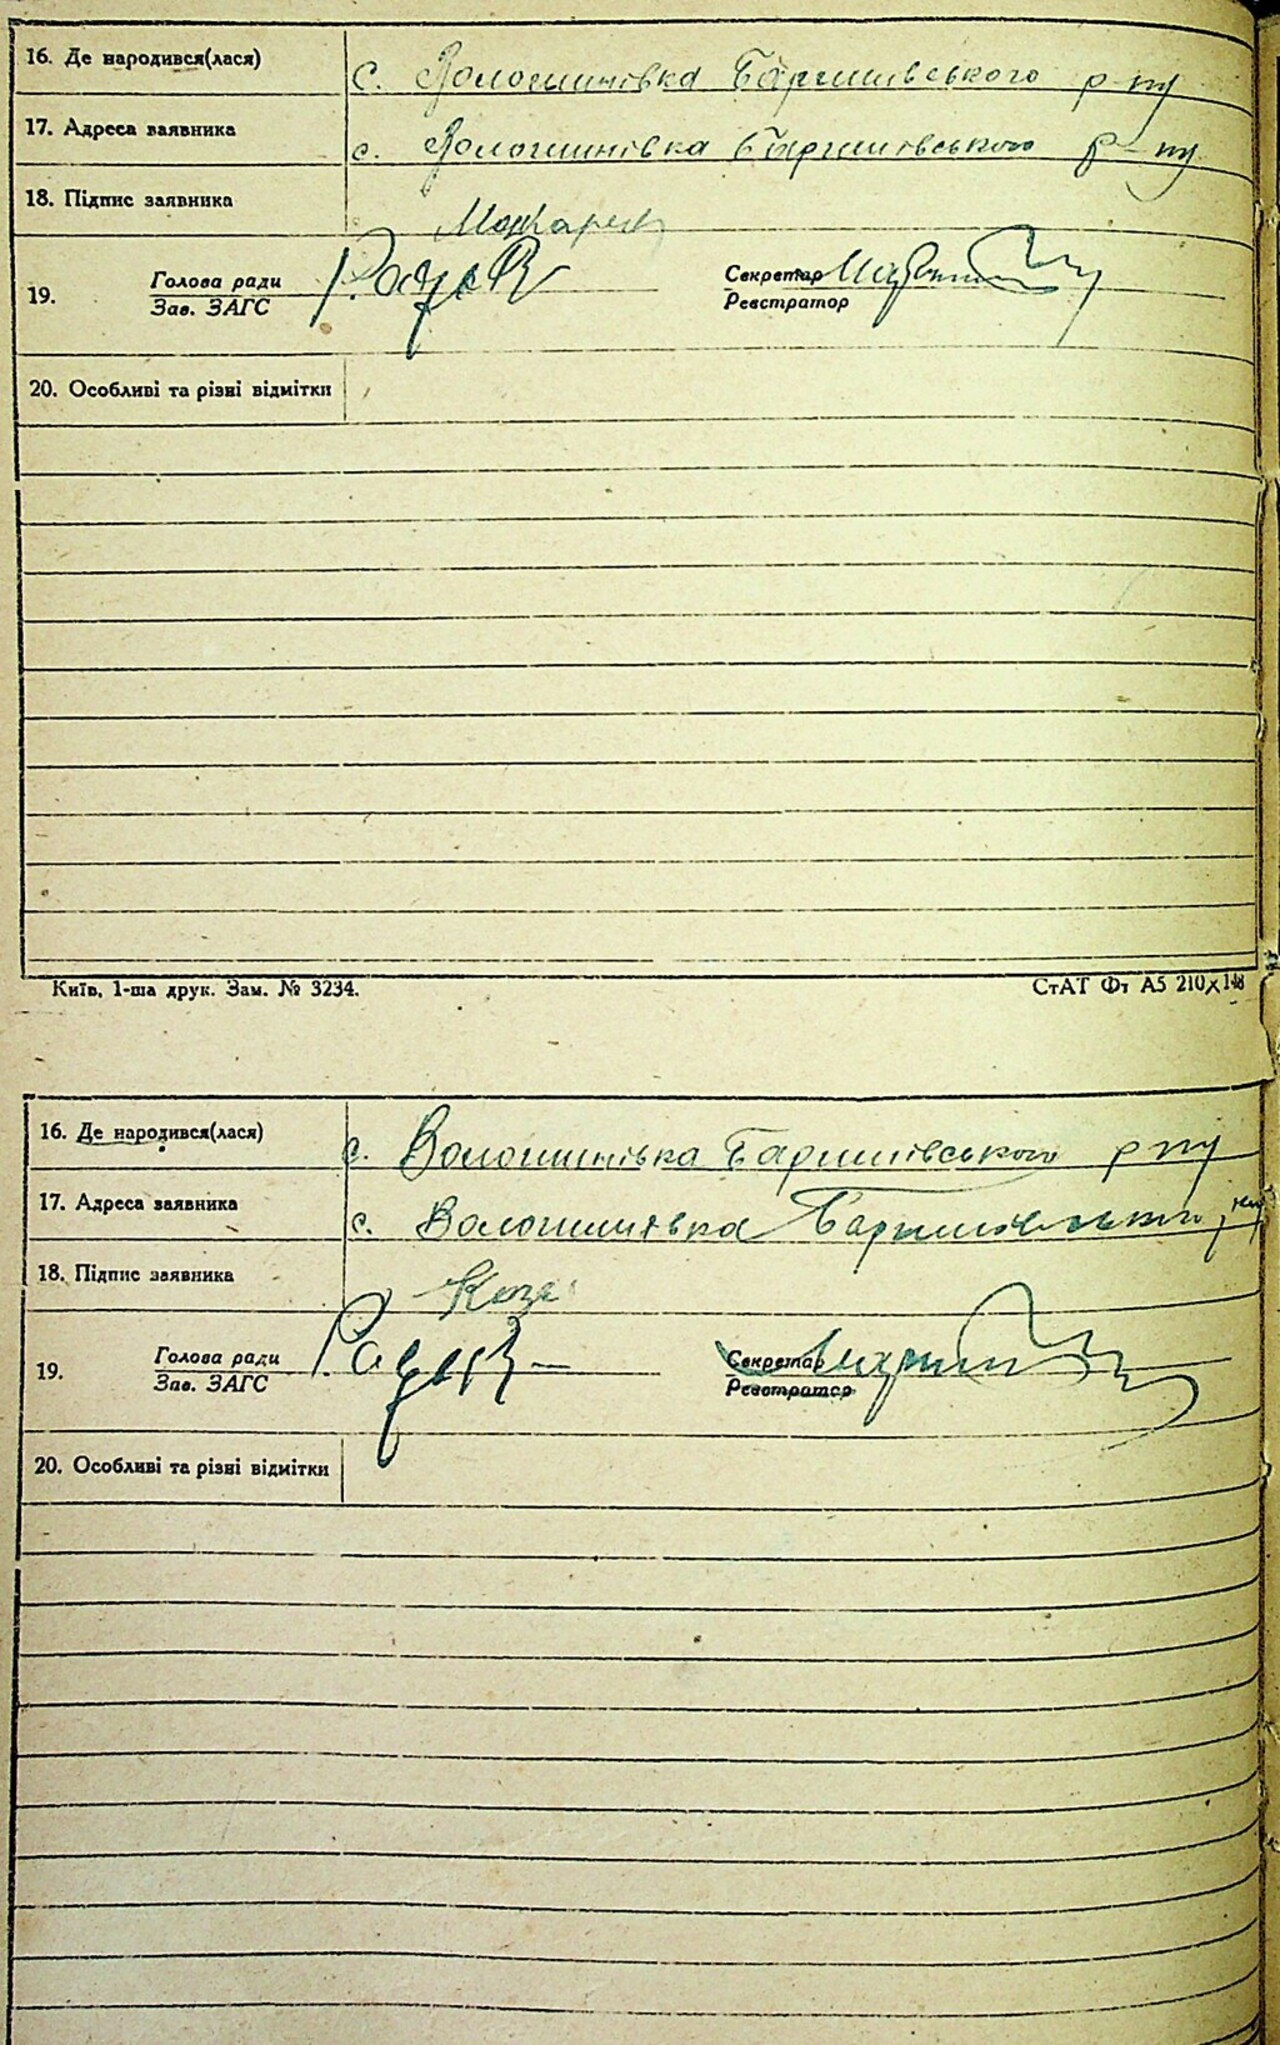 16. Де народився(лася) с. Волошинівка Баришівського р-ну
17. Адреса заявника с. Волошинівка Баришівського р-ну
18. Підпис заявника
19. Голова ради Секретар
Зав. ЗАГС Реєстратор
20. Особливі та різні відмітки
Київ, 1-ша друк. Зам. № 3234. СтАТ Фт А5 210×148
16. Де народився(лася) с. Волошинівка Баришівського р ну
17. Адреса заявника с. Волошинівка Баришівського
18. Підпис заявника
19. Голова ради Секретар
Зав. ЗАГС Реєстратор
20. Особливі та різні відмітки